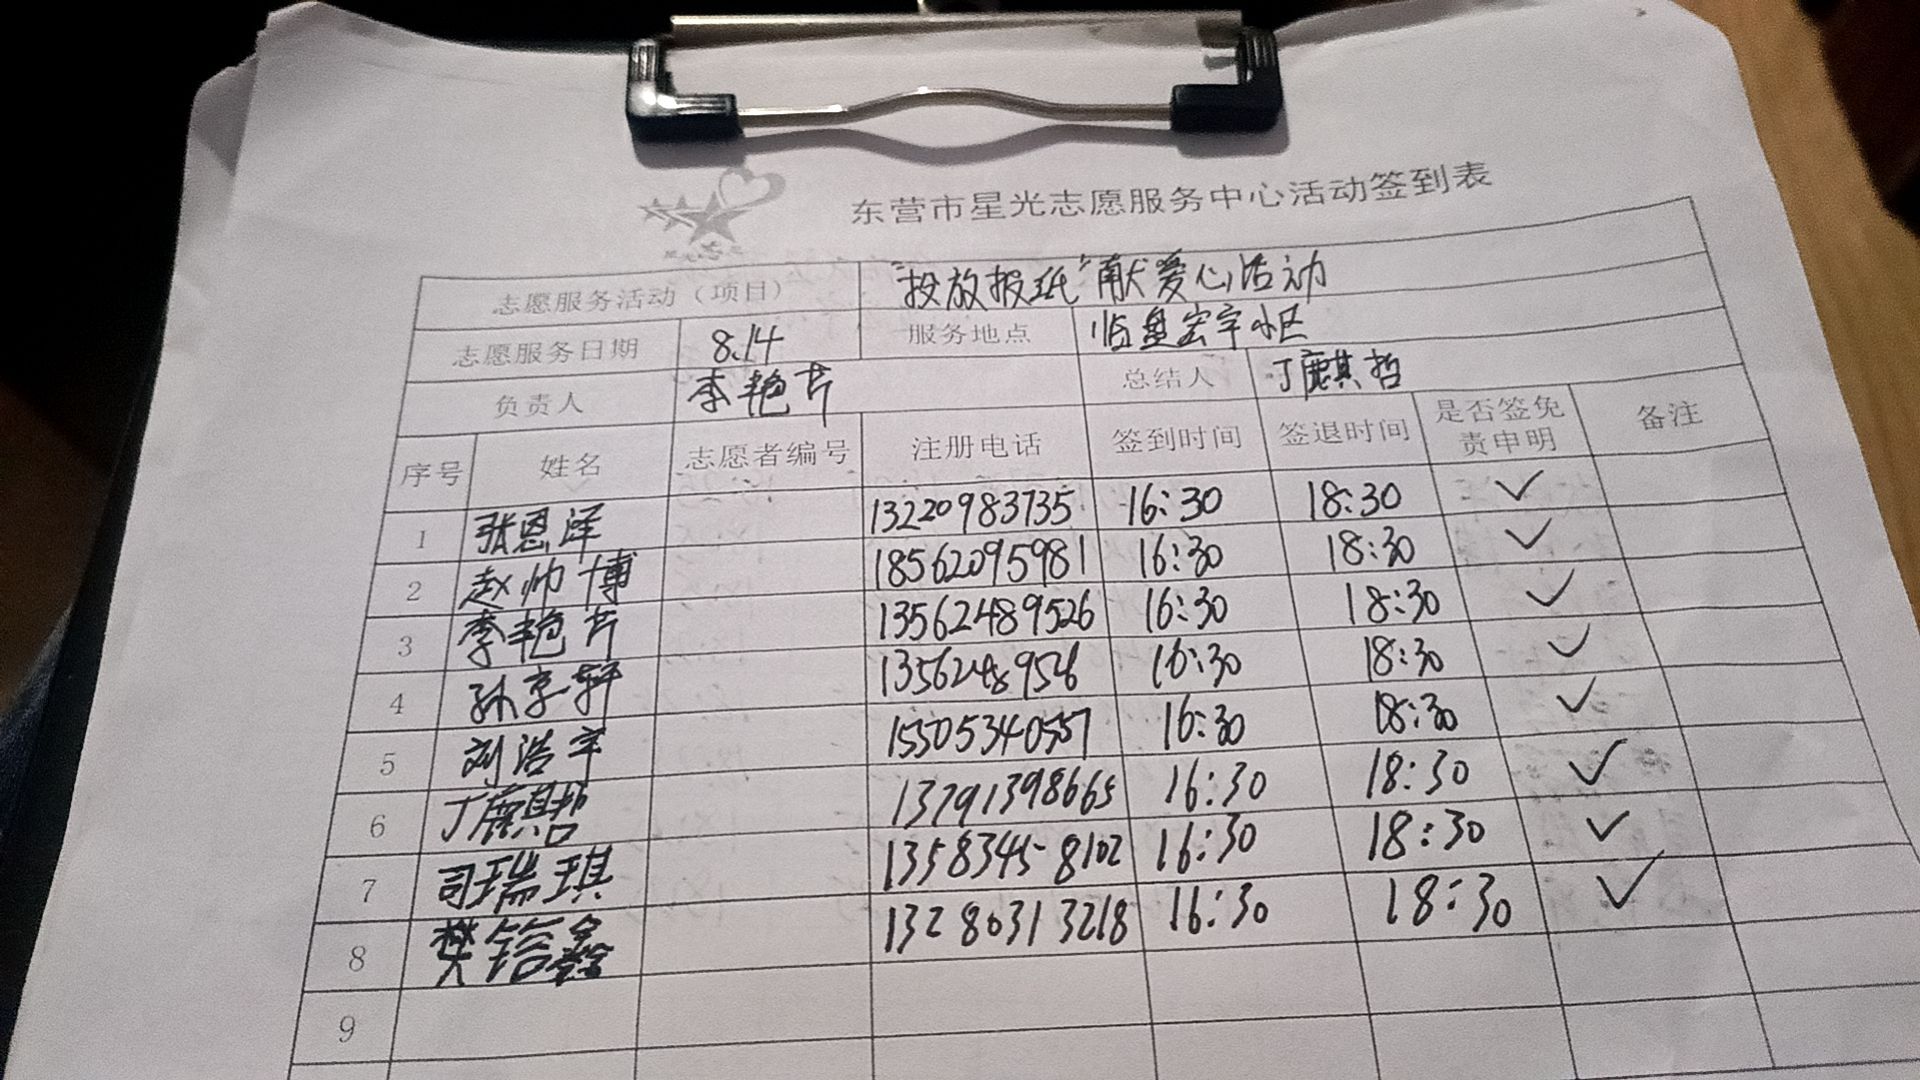 东营市星光志愿服务中心活动签到表
志愿服务活动（项目） “投放报纸”献爱心活动
志愿服务日期 8.14 服务地点 临盘宏宇小区
负责人 李艳芹 总结人 丁麒哲
序号 姓名 志愿者编号 注册电话 签到时间 签退时间 是否签免责申明 备注
1 张恩泽 13220983735 16:30 18:30 ✓
2 赵帅博 18562095981 16:30 18:30 ✓
3 李艳芹 13562489526 16:30 18:30 ✓
4 孙京轩 16:30 18:30 ✓
5 刘浩宇 15505340557 16:30 18:30 ✓
6 丁麒哲 13791398665 16:30 18:30 ✓
7 司瑞琪 1358345-8102 16:30 18:30 ✓
8 樊 鑫 13280313218 16:30 18:30 ✓
9